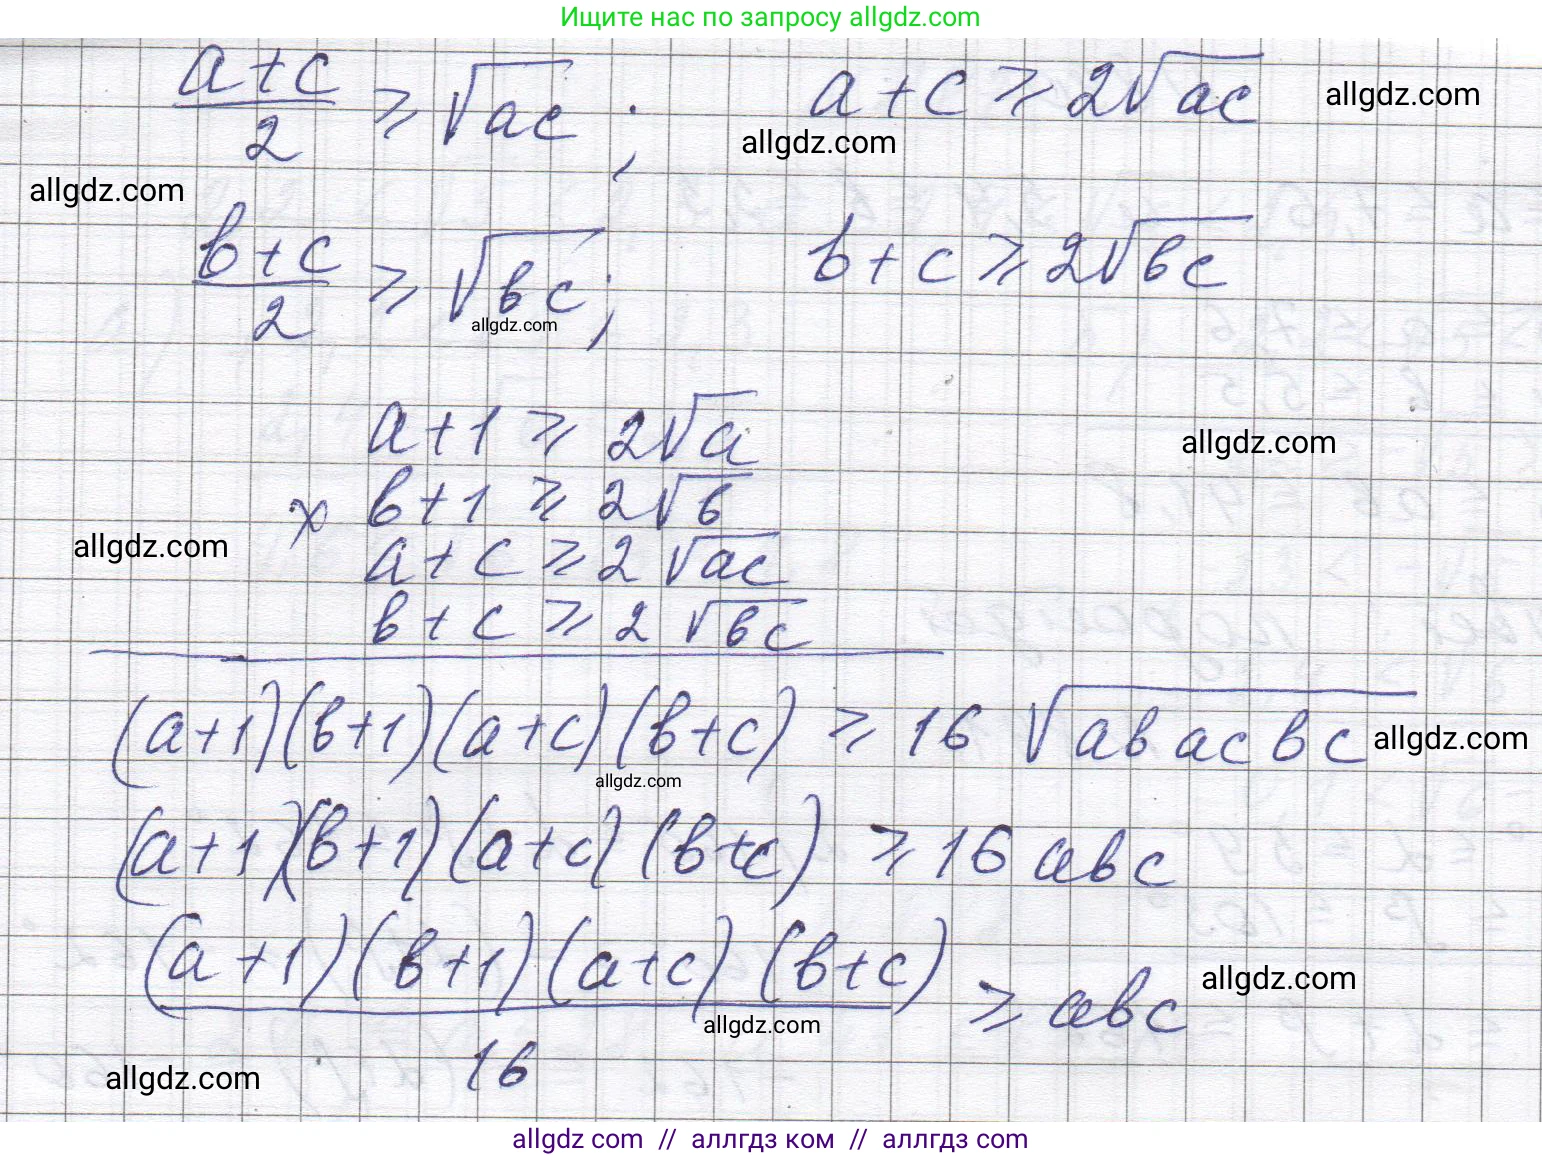 Ищите нас по запросу allgdz.com
(a+c)/2 ⩾ √ac ; a+c ⩾ 2√ac allgdz.com
allgdz.com
allgdz.com
(в+c)/2 ⩾ √вc ; в+c ⩾ 2√вc
allgdz.com
a+1 ⩾ 2√a
allgdz.com
× в+1 ⩾ 2√в
allgdz.com
a+c ⩾ 2√ac
в+c ⩾ 2√вc
(a+1)(в+1)(a+c)(в+c) ⩾ 16 √aв ac вc allgdz.com
allgdz.com
(a+1)(в+1)(a+c)(в+c) ⩾ 16 aвc
(a+1)(в+1)(a+c)(в+c)/16 ⩾ aвc allgdz.com
allgdz.com
allgdz.com
allgdz com // аллгдз ком // аллгдз.com